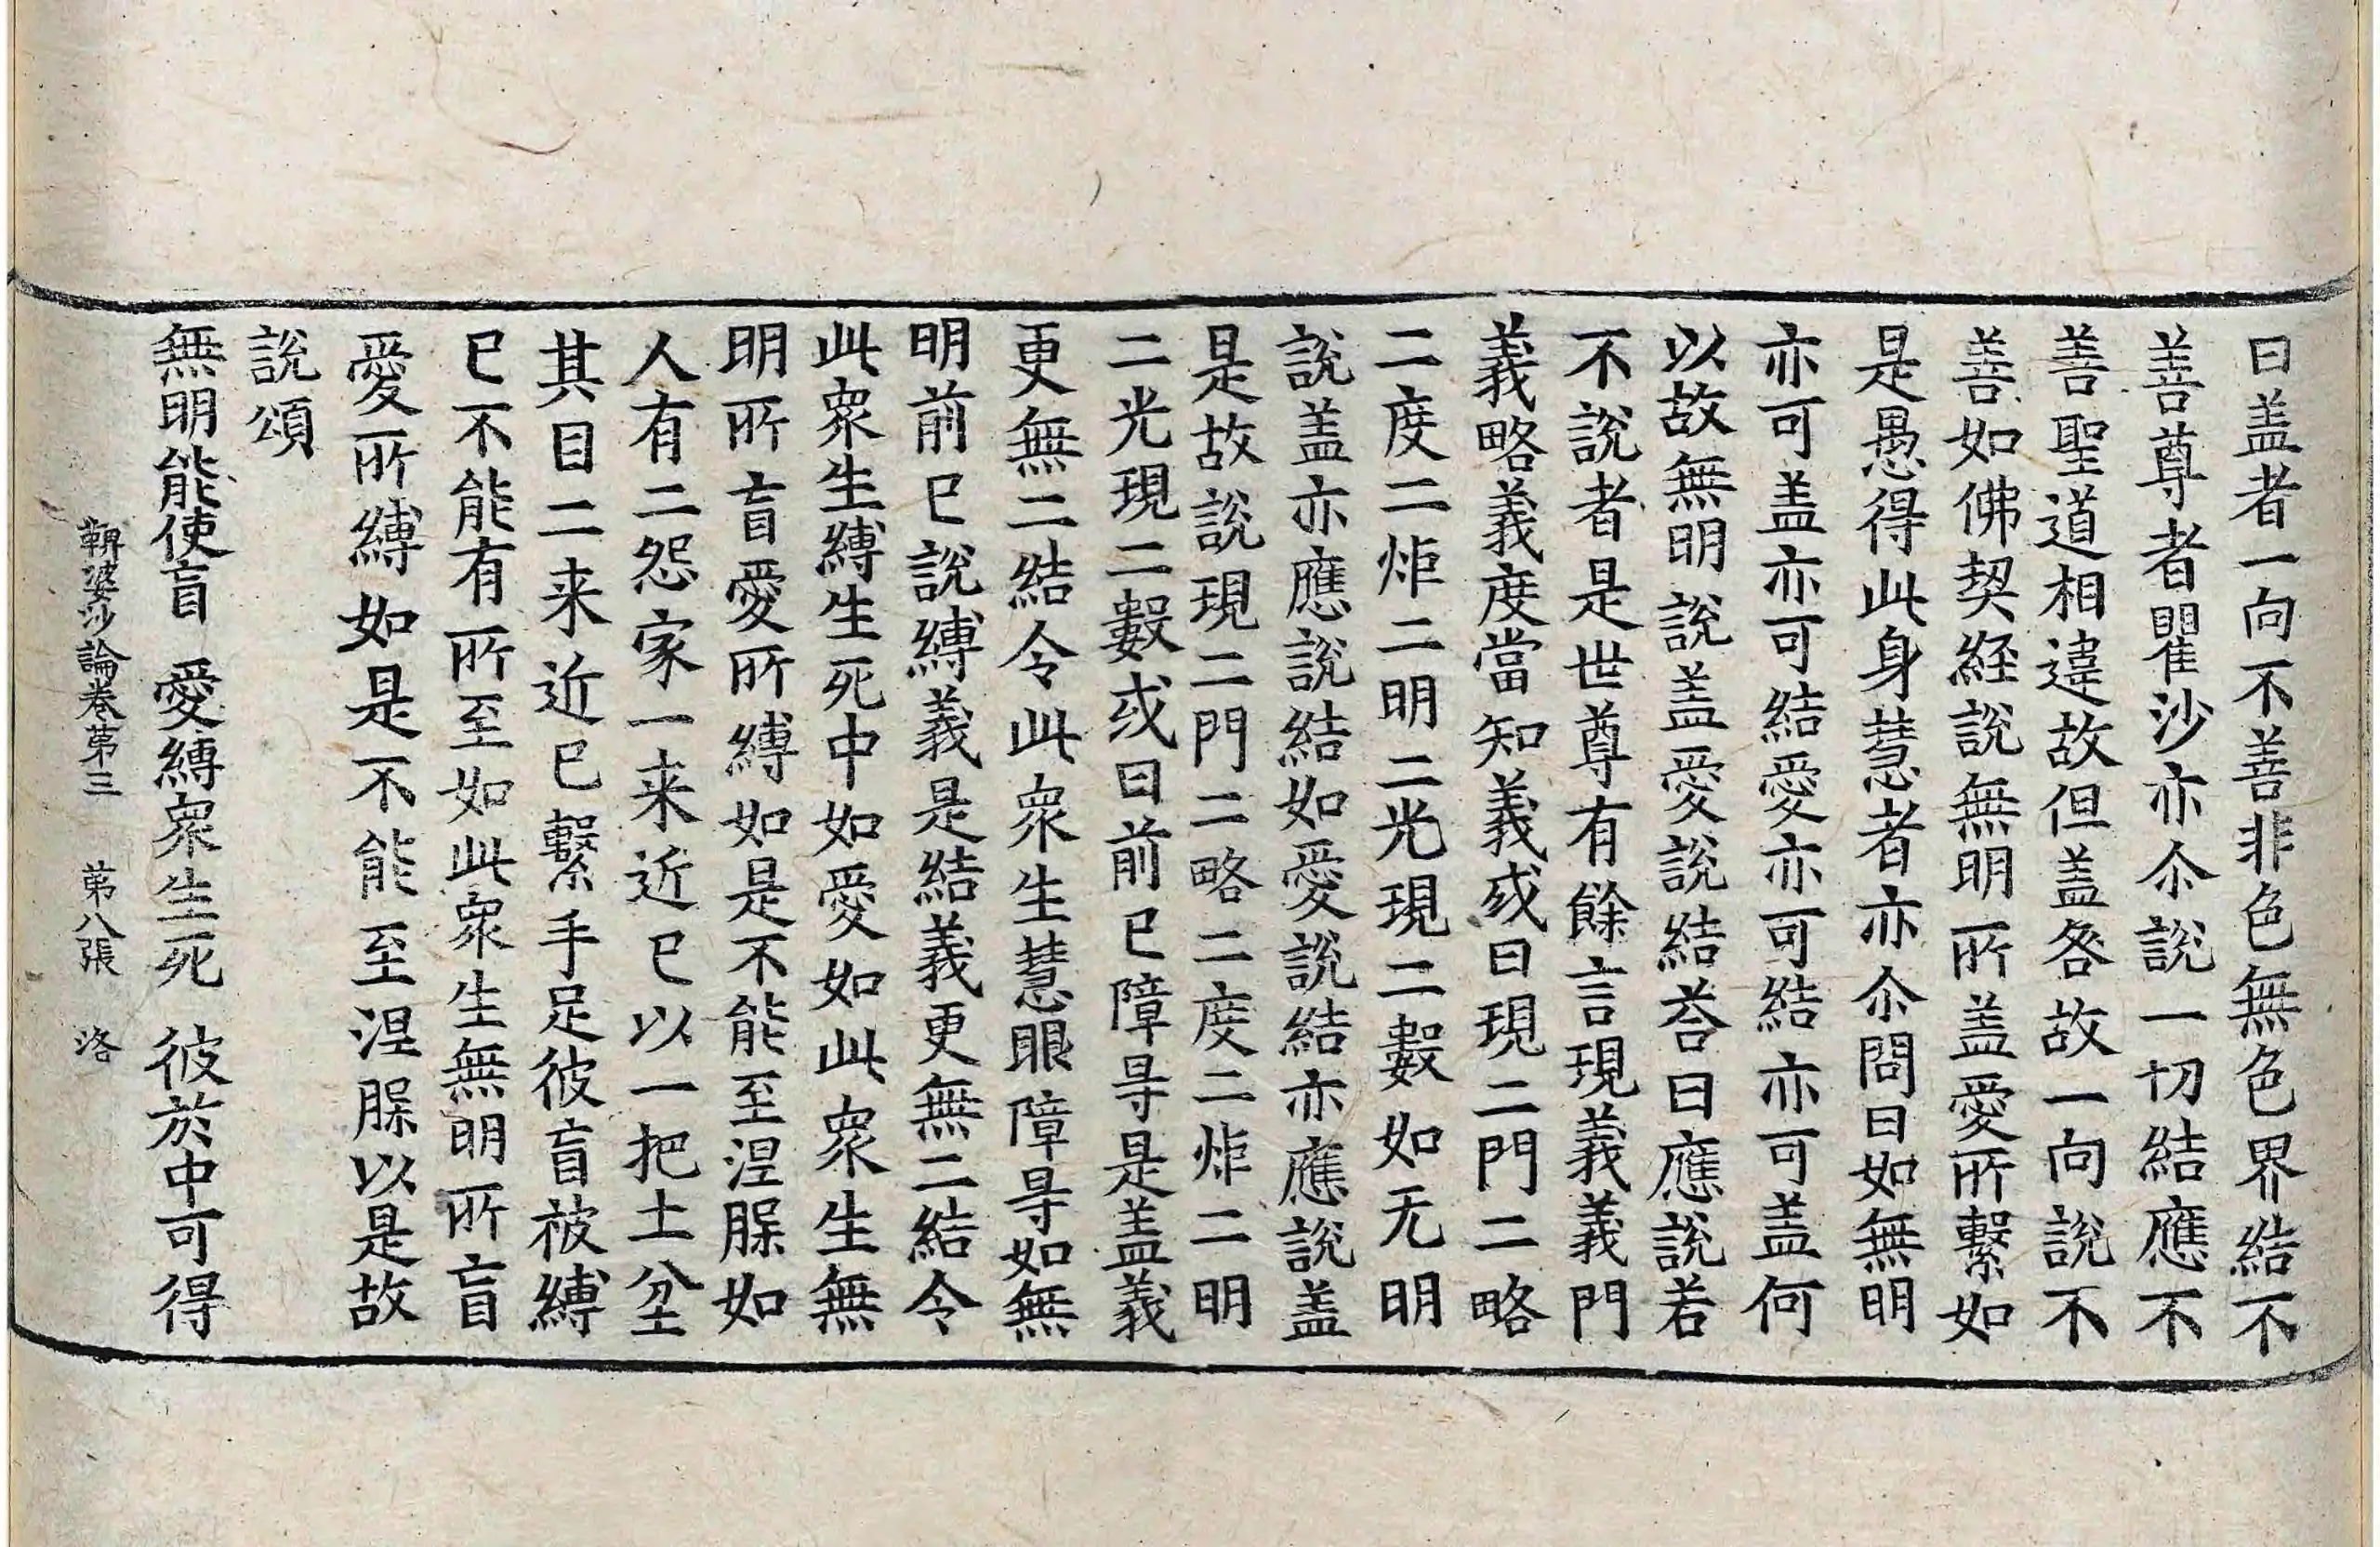 曰盖者一向不善非色無色界結不
善尊者瞿沙亦尒說一切結應不
善聖道相違故但盖咎故一向說不
善如佛契経說無明所盖愛所繫如
是愚得此身慧者亦尒問曰如無明
亦可盖亦可結愛亦可結亦可盖何
以故無明說盖愛說結荅曰應說若
不說者是世尊有餘言現義義門
義略義度當知義或曰現二門二略
二度二炬二明二光現二數如无明
說盖亦應說結如愛說結亦應說盖
是故說現二門二略二度二炬二明
二光現二數或曰前已障㝵是盖義
更無二結令此衆生慧眼障㝵如無
明前已說縛義是結義更無二結令
此衆生縛生死中如愛如此衆生無
明所盲愛所縛如是不能至涅槃如
人有二怨家一来近已以一把土坌
其目二来近已繫手足彼盲被縛
已不能有所至如此衆生無明所盲
愛所縛如是不能至涅槃以是故
說頌
無明能使盲 愛縛衆生死 彼於中可得
鞞婆沙論卷第三 第八張 洛